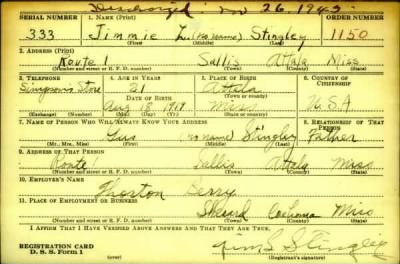 Discharged Nov 26 1945
SERIAL NUMBER 1. NAME (Print) ORDER NUMBER
333 Jimmie L. (no name) Stingley 1150
(First) (Middle) (Last)
2. ADDRESS (Print)
Route 1 Sallis Attala Miss
(Number and street or R. F. D. number) (Town) (County) (State)
3. TELEPHONE 4. AGE IN YEARS 5. PLACE OF BIRTH 6. COUNTRY OF CITIZENSHIP
Simpsons Store 21 Attala
DATE OF BIRTH (Town or county)
Aug 18 1919 Miss U.S.A
(Exchange) (Number) (Mo.) (Day) (Yr.) (State or country)
7. NAME OF PERSON WHO WILL ALWAYS KNOW YOUR ADDRESS 8. RELATIONSHIP OF THAT PERSON
Gus (no name) Stingley Father
(Mr., Mrs., Miss) (First) (Middle) (Last)
9. ADDRESS OF THAT PERSON
Route 1 Sallis Attala Miss
(Number and street or R. F. D. number) (Town) (County) (State)
10. EMPLOYER'S NAME
Thorton Berry
11. PLACE OF EMPLOYMENT OR BUSINESS
Sherard Coahoma Miss
(Number and street or R. F. D. number) (Town) (County) (State)
I AFFIRM THAT I HAVE VERIFIED ABOVE ANSWERS AND THAT THEY ARE TRUE.
REGISTRATION CARD
D. S. S. Form 1
Jim S Stingley
(Registrant's signature)